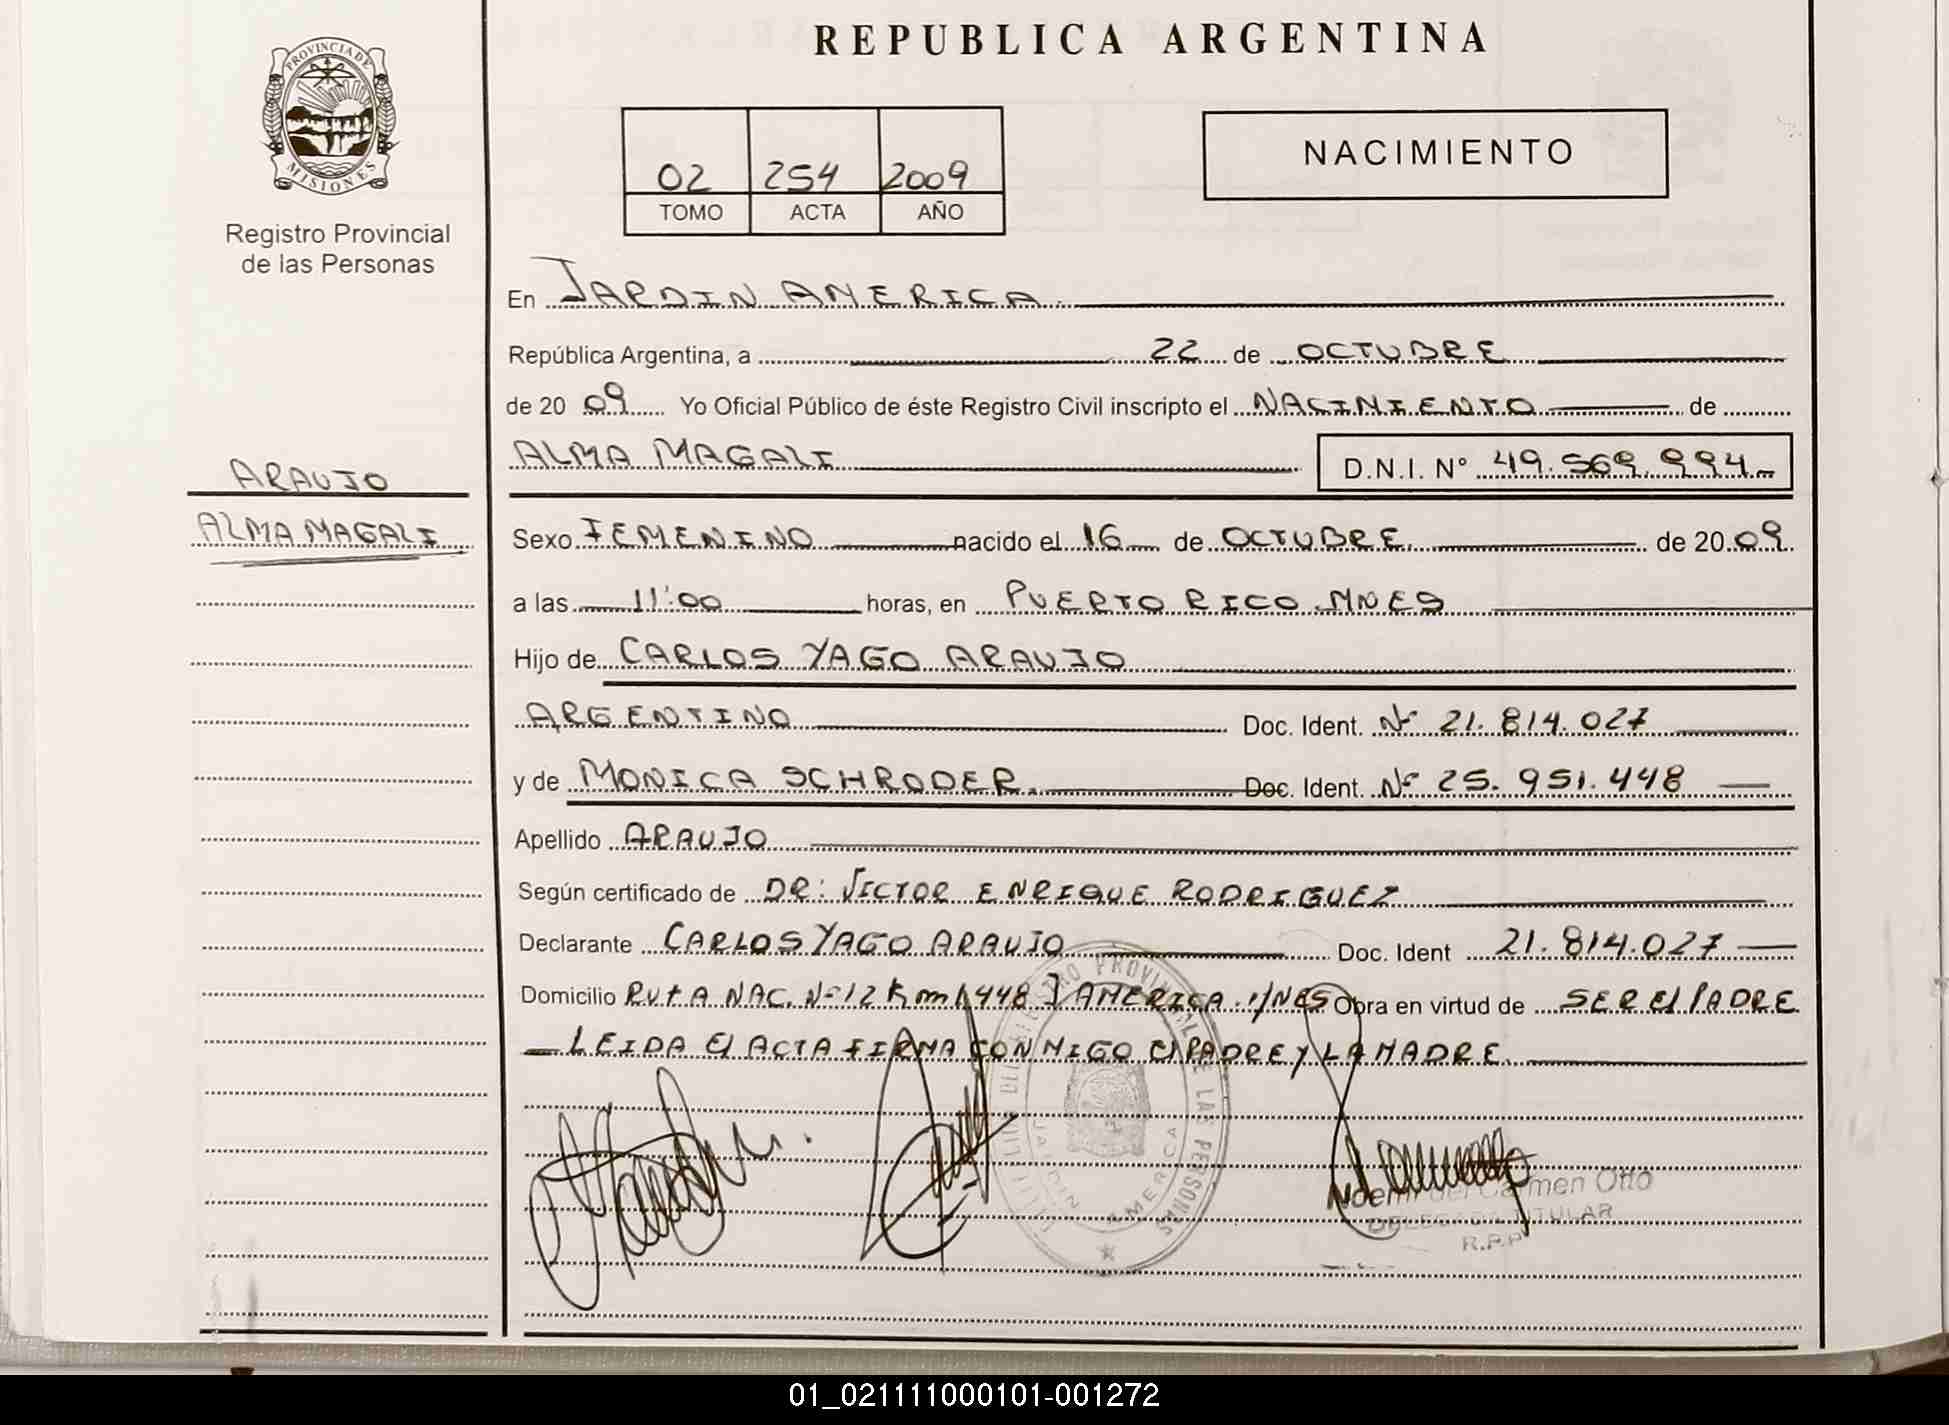 REPUBLICA ARGENTINA
PROVINCIA DE
MISIONES
Registro Provincial
de las Personas
02 254 2009
TOMO ACTA AÑO
NACIMIENTO
En JARDIN AMERICA
República Argentina, a 22 de OCTUBRE
de 20 09 Yo Oficial Público de éste Registro Civil inscripto el NACIMIENTO de
ALMA MAGALI D.N.I. N° 49.569.994
ARAUJO
ALMA MAGALI
Sexo FEMENINO nacido el 16 de OCTUBRE de 20 09
a las 11:00 horas, en PUERTO RICO MNES
Hijo de CARLOS YAGO ARAUJO
ARGENTINO Doc. Ident. N° 21.814.027
y de MONICA SCHRODER. Doc. Ident. N° 25.951.448
Apellido ARAUJO
Según certificado de DR: VICTOR ENRIQUE RODRIGUEZ
Declarante CARLOS YAGO ARAUJO Doc. Ident 21.814.027
Domicilio RUTA NAC. N°12 Km 1448 J AMERICA. MNES Obra en virtud de SER El PADRE
LEIDA El ACTA FIRMA CONMIGO El PADRE Y LA MADRE.
PROVINCIAL DE LAS PERSONAS
JARDIN AMERICA
Noemi del Carmen Otto
DELEGADA TITULAR
R.P.P
01_021111000101-001272